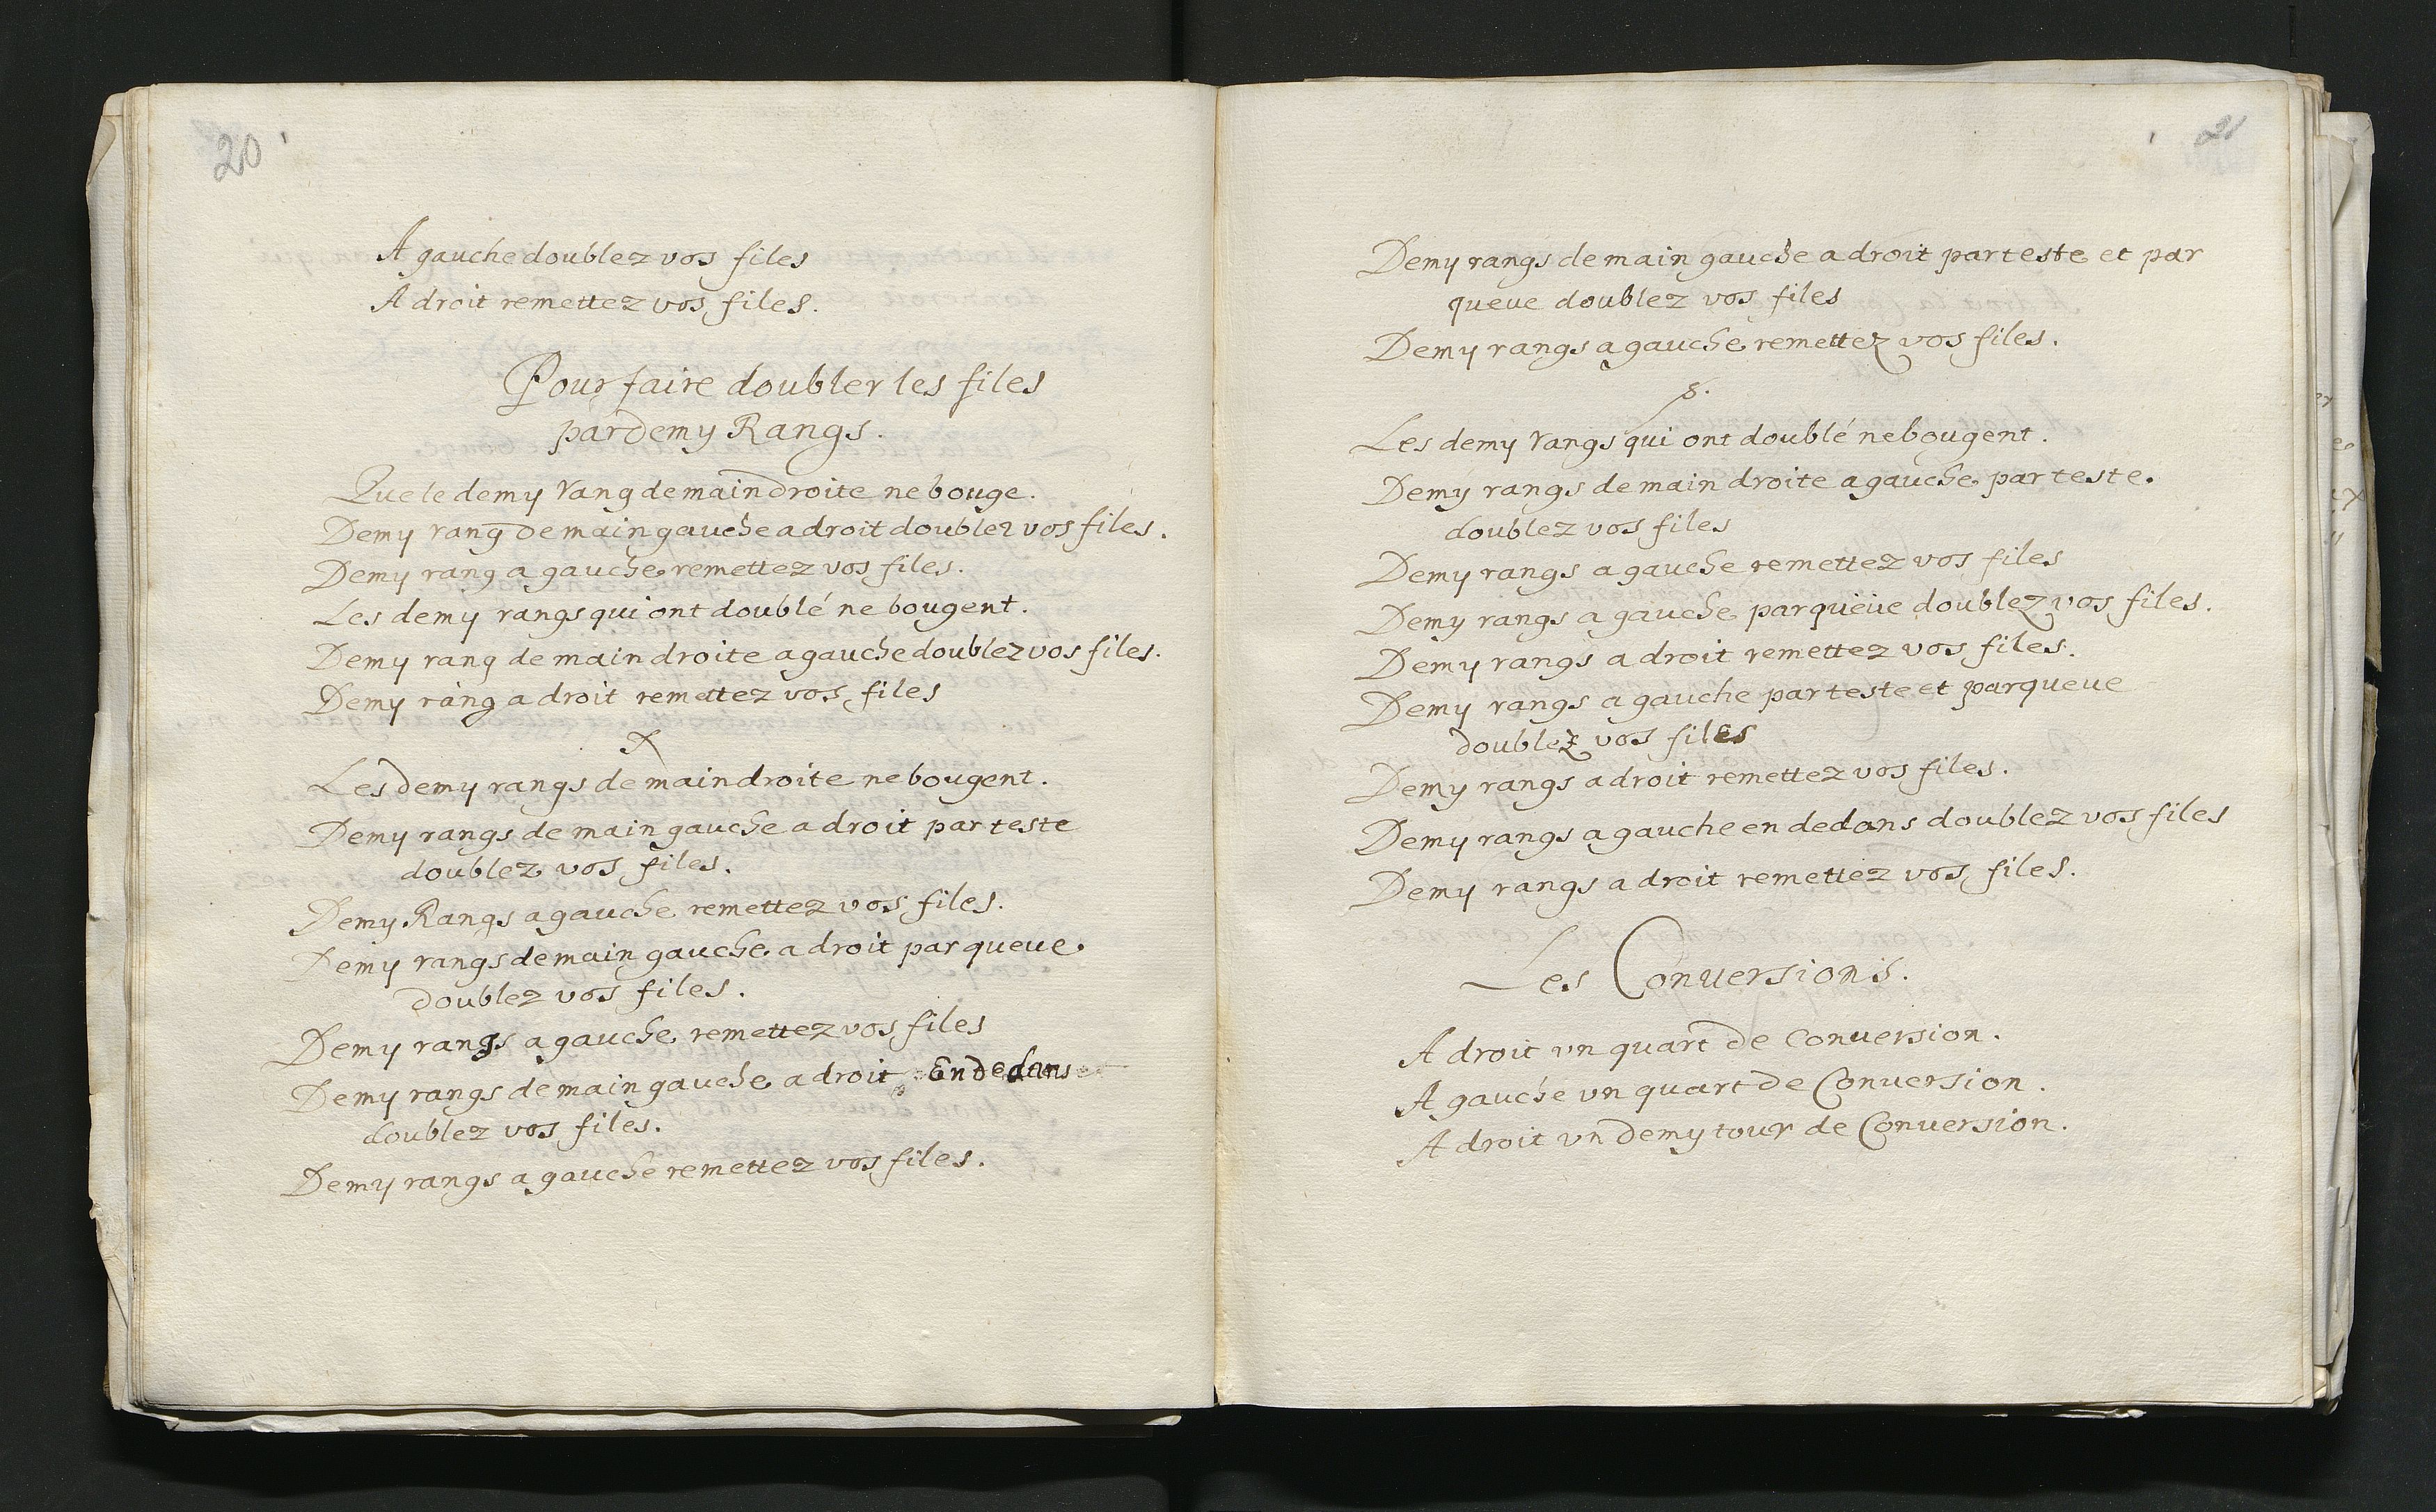 20
A gauche doublez vos files
A droit remettez vos files.
Pour faire doubler les files
par demy Rangs.
Que le demy rang de main droite ne bouge.
Demy rang de main gauche a droit doublez vos files.
Demy rang a gauche remettez vos files.
Les demy rangs qui ont doublé ne bougent.
Demy rang de main droite a gauche doublez vos files.
Demy rang a droit remettez vos files
Les demy rangs de main droite ne bougent.
Demy rangs de main gauche a droit par teste
doublez vos files.
Demy Rangs a gauche remettez vos files.
Demy rangs de main gauche a droit par queue
doublez vos files.
Demy rangs a gauche remettez vos files
Demy rangs de main gauche a droit En dedans
doublez vos files.
Demy rangs a gauche remettez vos files.
21
Demy rangs de main gauche a droit par teste et par
queue doublez vos files
Demy rangs a gauche remettez vos files.
Les demy rangs qui ont doublé ne bougent.
Demy rangs de main droite a gauche par teste.
doublez vos files
Demy rangs a gauche remettez vos files
Demy rangs a gauche par queüe doublez vos files.
Demy rangs a droit remettez vos files.
Demy rangs a gauche par teste et par queue
doublez vos files
Demy rangs a droit remettez vos files.
Demy rangs a gauche en dedans doublez vos files
Demy rangs a droit remettez vos files.
Les Conuersions.
A droit vn quart de conuersion.
A gauche vn quart de Conuersion.
A droit vn demy tour de Conuersion.